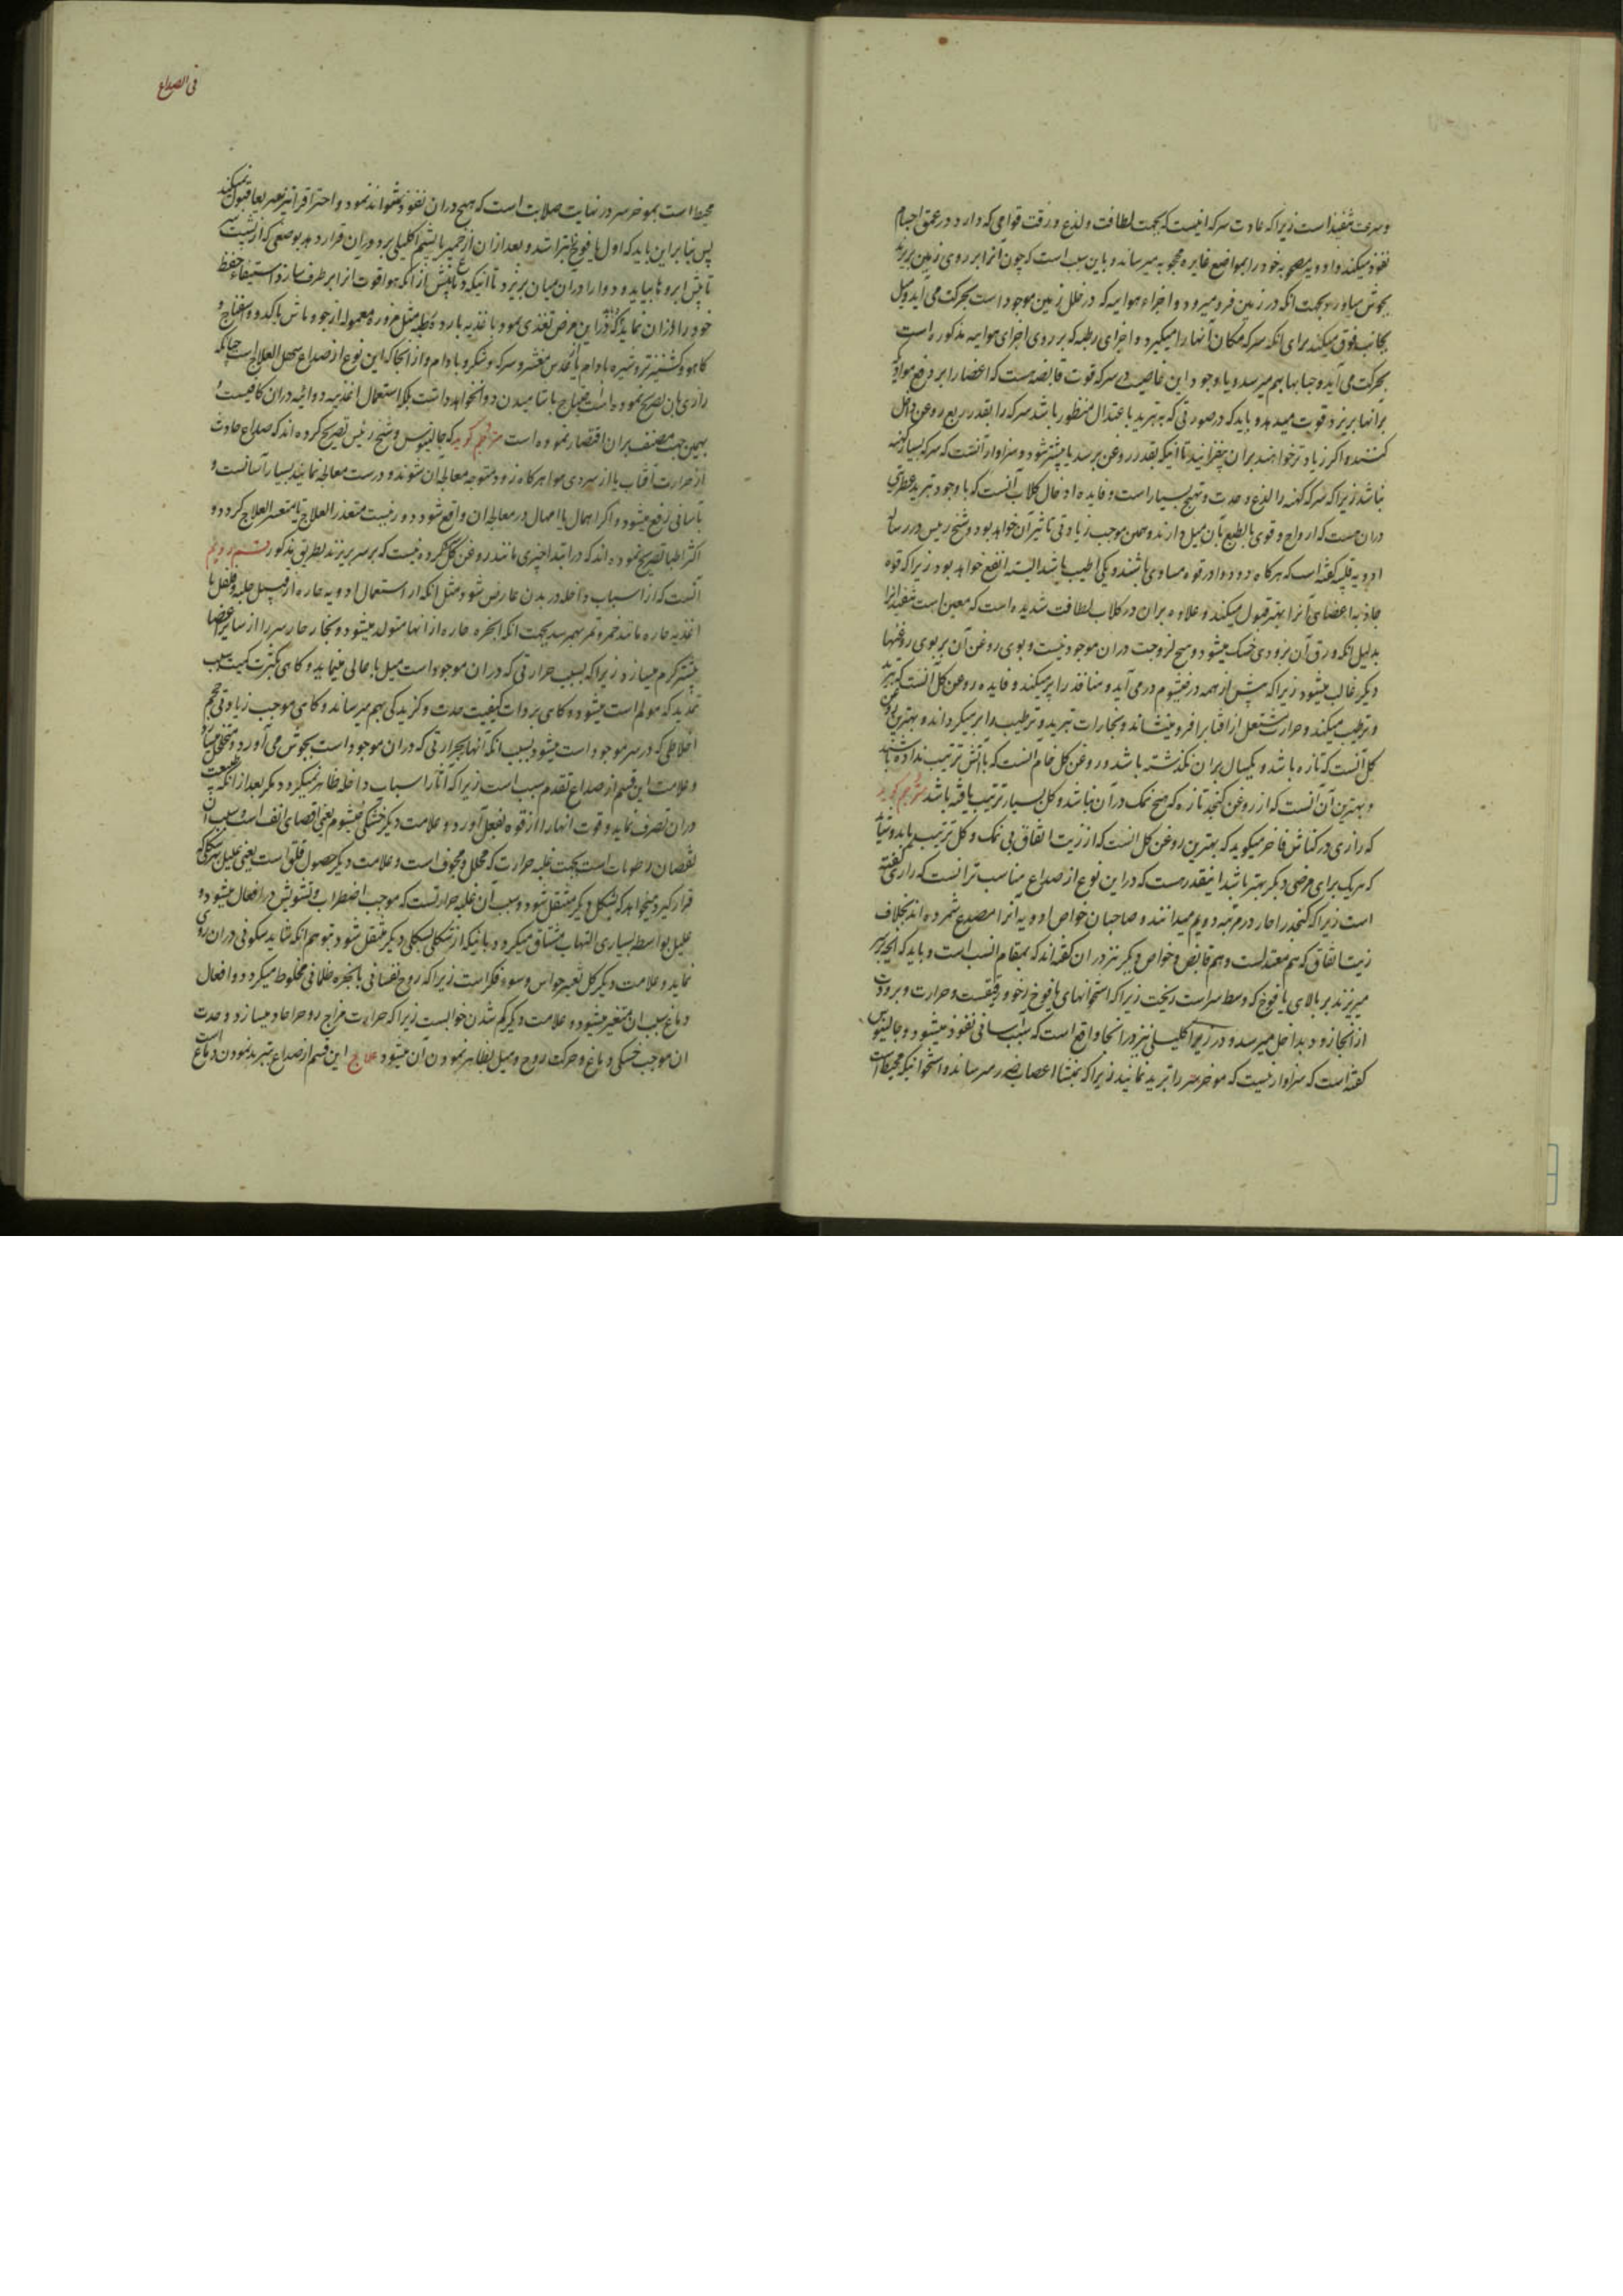 و سرعت تنفیذ است زیرا که عادت سرکه اینست که بجهت لطافت و لذع و رقت قوامی که دارد در عمق اجسام
نفوذ میکند و ادویه مصحوبه خود را بمواضع غایره محجوبه میرساند و باین سبب است که چون آنرا بر روی زمین بریزند
بجوش میاورد بجهت انکه در زمین فرو میرود و اجزاء هوائیه که در خلل زمین موجود است بحرکت می آید و میل
بجانب فوق میکند برای انکه سرکه مکان آنها را میگیرد و اجزای رطبه که بر روی اجزای هوائیه مذکوره است
بحرکت می آید و حبابها بهم میرسد و با وجود این خاصیت در سرکه قوت قابضه هست که اعضا را بر دفع موادی که
بر آنها بریزد قوت میدهد و باید که در صورتی که به تبرید باعتدال منظور باشد سرکه را بقدر ربع روغن داخل
کنند و اگر زیادتر خواهند بران بیفزایند تا اینکه بقدر روغن برسد یا بیشتر شود و سزاوار آنست که سرکه بسیار کهنه
نباشد زیرا که سرکه کهنه را لذع و حدت و تهیج بسیار است و فایده ادخال گلاب آنست که با وجود تبرید عطریتی
دران هست که ارواح و قوی بالطبع بان میل دارند و همین موجب زیادتی تاثیر آن خواهد بود و شیخ رییس در رساله
ادویه قلبیه گفته است که هرگاه دو دوا در قوه مساوی باشند و یکی اطیب باشد البته انفع خواهد بود زیرا که قوه
جاذبه اعضای آنرا بهتر قبول میکند و علاوه بران در گلاب لطافت شدیده است که معین است تنفیذ انرا
بدلیل انکه ورق آن بزودی خشک میشود و هیچ لزوجت دران موجود نیست و بوی روغن آن بر بوی روغنها
دیگر غالب میشود زیرا که پیش از همه در خیشوم درمی آید و منافذ را پر میکند و فایده روغن گل آنست که تبرید
و ترطیب میکند و حرارت مشتعل از افتاب را فرو مینشاند و بخارات تبرید و ترطیب را بر میگرداند و بهترین روغن
گل آنست که تازه باشد و یکسال بران نگذشته باشد و روغن گل خام انست که باتش ترتیب نداده باشند
و بهترین آن آنست که از روغن کنجد تازه که هیچ نمک در آن نباشد و گل بسیار ترتیب یافته باشد مترجم گوید
که رازی در کناش فاخر میگوید که بهترین روغن گل انست که از زیت انفاق بی نمک و گل ترتیب یابد و شاید
که هریک برای مرضی دیگر بهتر باشد اینقدر هست که در این نوع از صداع مناسب تر انست که رازی گفته
است زیرا که کنجد را حار در مرتبه دویم میدانند و صاحبان خواص ادویه انرا مصدع شمرده اند بخلاف
زیت انفاق که هم معتدلست و هم قابض و خواص دیگر نیز در ان گفته اند که بمقام انسب است و باید که انچه بر سر
میریزند بر بالای یافوخ که وسط سر است ریخت زیرا که استخوانهای یافوخ رخو و رقیقست و حرارت و برودت
از انجا زود بداخل میرسد و درز نیز اکلیلی نیز در انجا واقع است که سبب آسانی نفوذ میشود و جالینوس
گفته است که سزاوار نیست که موخر سر را تبرید نمایند زیرا که بمنشا اعصاب ضرر میرساند و استخوانیکه محیط است
فی الصداع
محیط است بموخر سر در نهایت صلابت است که هیچ دران نفوذ نمیتواند نمود و احتراق را نیز سریعا قبول نمیکند
پس بنا بر این باید که اول یافوخ را بتراشد و بعد ازان از خمیر یا پشم اکلیلی بر دوران قرار دهد بوضعی که از پشت سر
تا پیش ابروها بیاید و دوا را دران میان بریزد تا آنیکه دوا پیش از آنکه هوا قوت انرا بر طرف سازد استیفاء حفظ
خود را ازان نماید و در این مرض تغذی نمود باغذیه بارده رطبه مثل مزوره معموله از جو و ماش یا کدو و اسفناج و
کاهو و کشنیز تر و شیره بادام یا عدس مقشر و سرکه و شکر و بادام و از انجا که این نوع از صداع سهل العلاج است چنانکه
رازی بان تصریح نموده است محتاج باشامیدن دوا نخواهد داشت بلکه استعمال اغذیه دوائیه دران کافیست و
بهمین جهت مصنف بران اقتصار نموده است مترجم گوید که جالینوس و شیخ رئیس تصریح کرده اند که صداع حادث
از حرارت آفتاب یا از سردی هوا هرگاه زود متوجه معالجه ان شوند و درست معالجه نمایند بسیار آسانست و
باسانی رفع میشود و اگر اهمال یا امهال در معالجه ان واقع شود دور نیست متعذر العلاج یا متعسر العلاج گردد و
اکثر اطبا تصریح نموده اند که در ابتدا چیزی مانند روغن گل سرد کرده نیست که بر سر بریزند بطریق مذکور قسم دویم
آنست که از اسباب داخله در بدن عارض شود مثل انکه از استعمال ادویه حاره از قبیل حلبه و فلفل یا
اغذیه حاره مانند خمر و تمر بهمرسد بجهت انکه ابخره حاره از انها متولد میشود و بخار حار سر را از سایر اعضا
بیشتر گرم میسازد زیرا که بسبب حرارتی که دران موجود است میل باعالی مینماید و گاهی بکثرت کمیت سبب
تمدید که مولم است میشود و گاهی بردائت کیفیت حدت و گزیدگی بهم میرساند و گاهی موجب زیادتی حجم
اخلاطی که در سر موجود است میشود بسبب انکه آنها بحرارتی که دران موجود است بجوش می آورد و متخلخل میسازد
و علامت این قسم از صداع تقدم سبب است زیرا که اثار اسباب داخله ظاهر نمیگردد مگر بعد از انکه طبیعت
دران تصرف نماید و قوت انها را از قوه بفعل آورد و علامت دیگر خشکی خیشوم یعنی اقصای انف است و سبب ان
نقصان رطوبات است بجهت غلبه حرارت که محلل و مجفف است و علامت دیگر حصول قلق است یعنی علیل بر شکلی که
قرار گیرد میخواهد که بشکل دیگر منتقل شود و سبب آن غلبه حرارتست که موجب اضطراب و تشویش در افعال میشود و
علیل بواسطه بسیاری التهاب مشتاق میگردد بانیکه از شکلی بشکلی دیگر منتقل شود بتوهم انکه شاید سکونی دران روی
نماید و علامت دیگر کل تغیر حواس و سوء فکر است زیرا که روح نفسانی بابخره ظلمانی مخلوط میگردد و افعال
دماغ بسبب ان متغیر میشود و علامت دیگر کم شدن خوابست زیرا که حرارت مزاج روح را حاد میسازد و حدت
ان موجب خشکی دماغ و حرکت روح و میل بظاهر نمودن آن میشود علاج این قسم از صداع بتبرید نمودن دماغ است